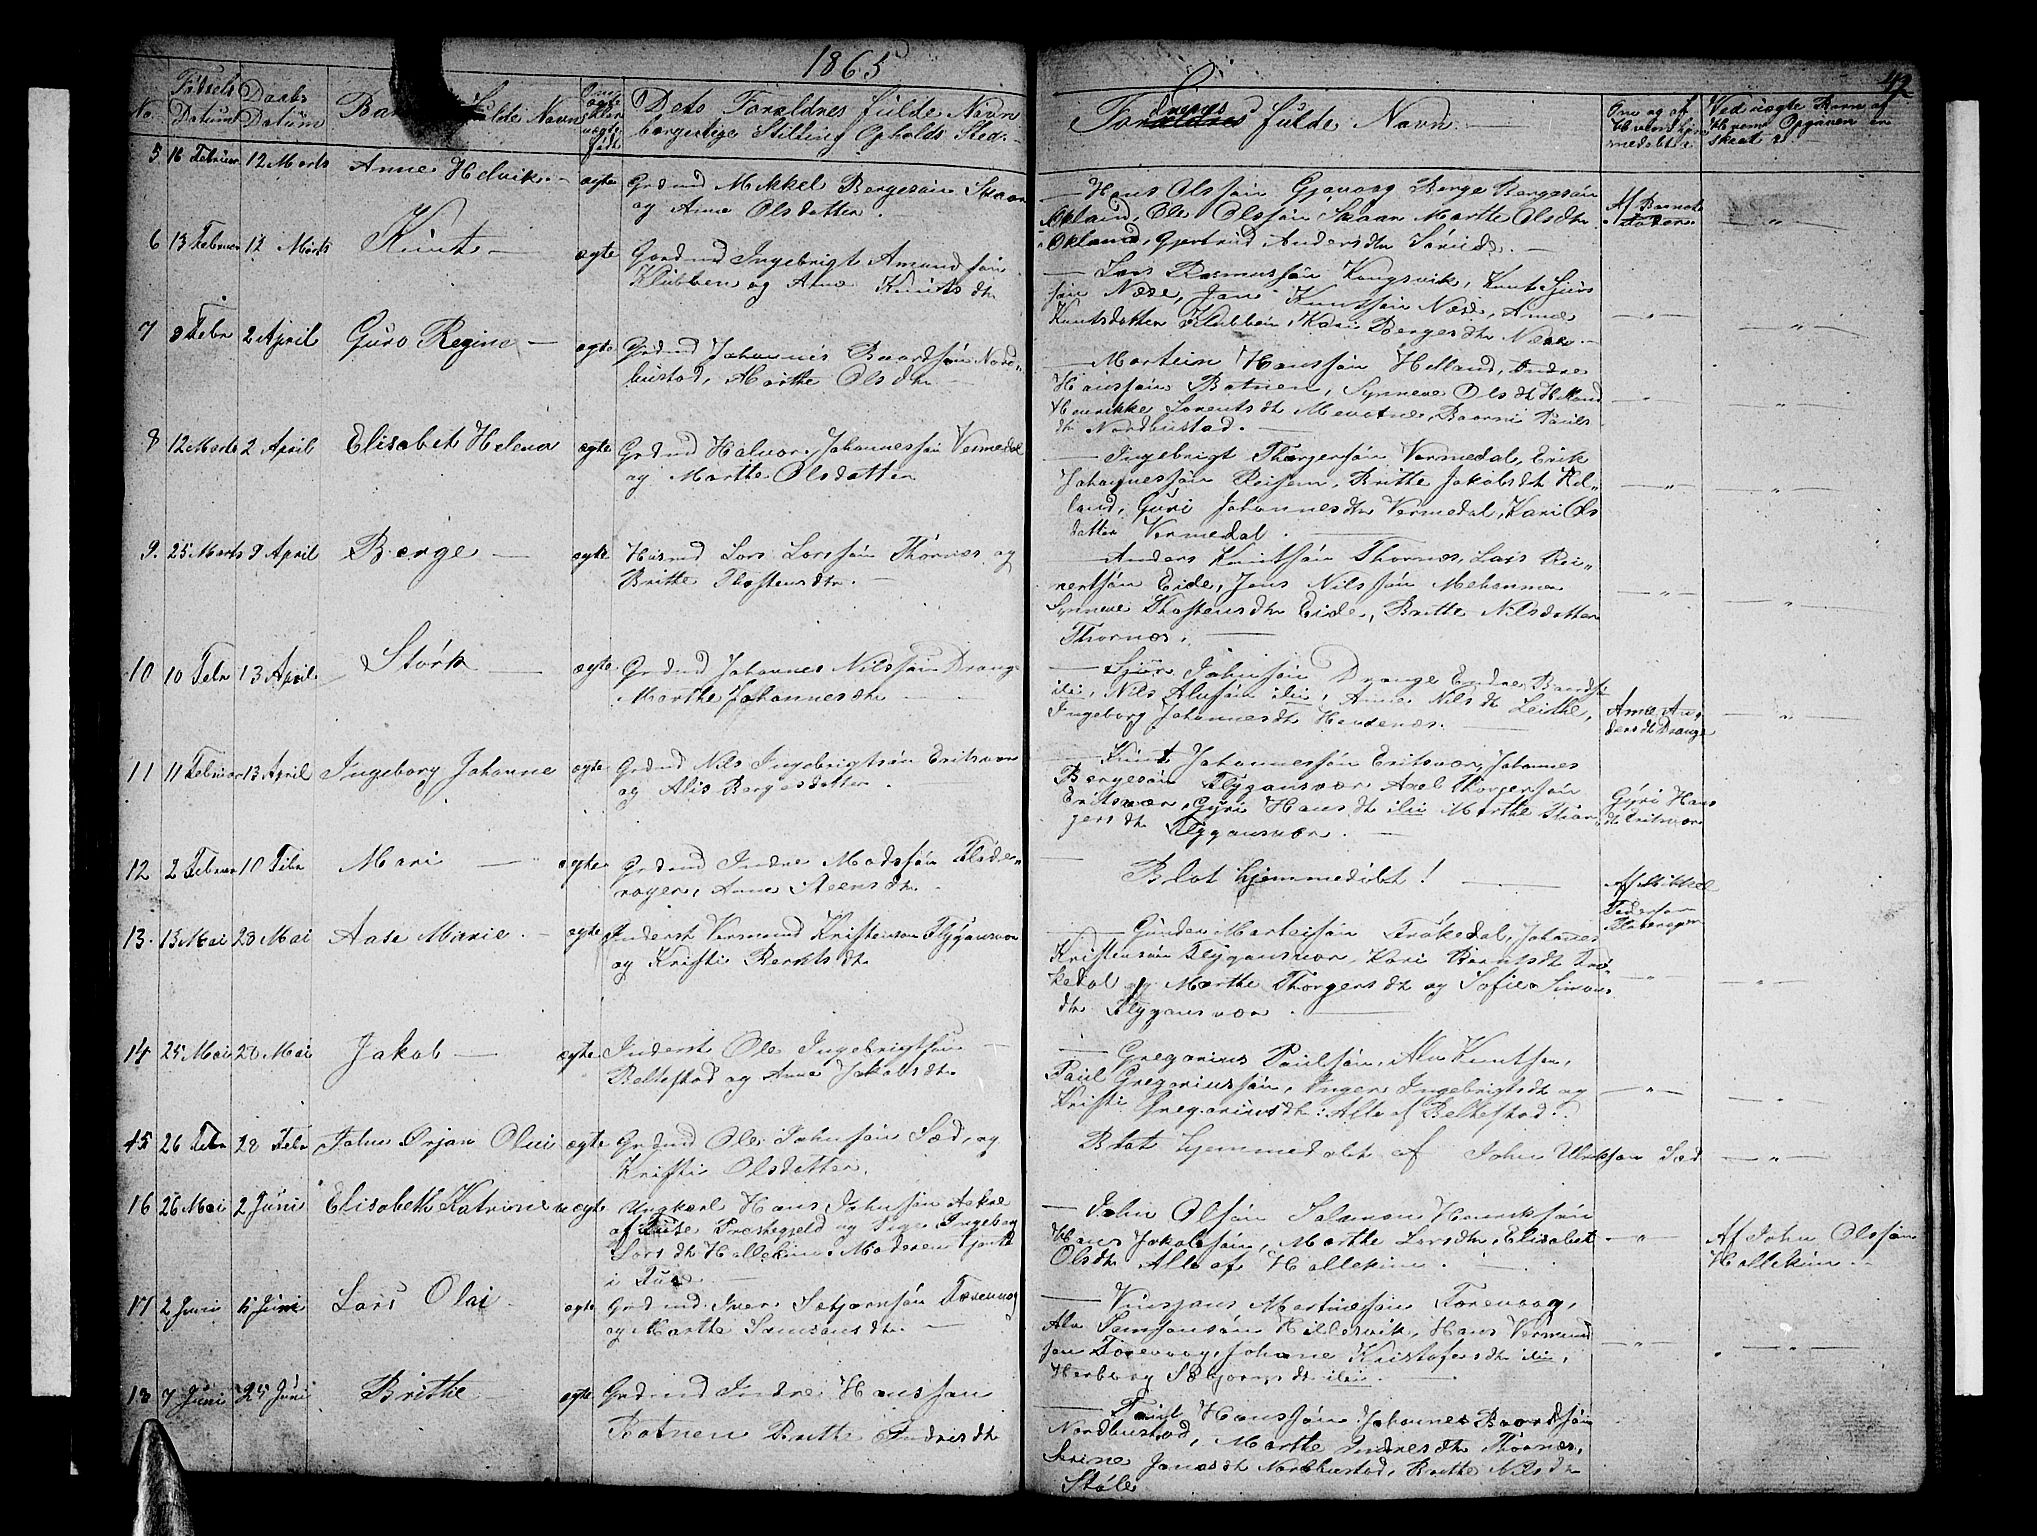 1865
42
No. Fødsels Datum Daabs Datum Barnets fulde Navn Om ægte eller uægte født Dets Forældres fulde Navn
borgerlige Stilling Opholds Sted.
Faddernes fulde Navn
Om og af hvem hjemmedøbt
Ved uægte Barn af hvem Opgaven er skeet
5 16 Februar 12 Marts Anne Helvik ægte Grdmd Mikkel Bergesøn Skaar
og Anna Olsdatter.
Hans Olssøn Gjøvaag Berge Bergesøn
Økland, Ole Olssøn Skaar Marthe Olsdtr
Økland, Gjertrud Andersdtr
Af Barnets
Fader
6 13 Februar 12 Marts Knut ægte Gardmd Ingebrigt Amundssøn
Klubben og Anna Knutsdtr
Lars Rasmussøn Kongsvik, Knut Sjurs
søn Næse, Jan Knutssøn Næse, Anna
Knutsdatter Klubben, Kari Bergesdtr Næse.
7 3 Febr 2 April Guro Regine ægte Grdmd Johannes Baardsøn Nord-
bustad, Marthe Olsdtr
Martein Hanssøn Helland, Endre
Hanssøn Botnen, Synneve Olsdtr Helland
Henrikke Lorentsdtr Paals
dtr Nordbustad.
8 12 Marts 2 April Elisabet Helena ægte Grdmd Halvor Johannessøn Vermedal
og Marthe Olsdatter
Ingebrigt Thorgersøn Vermedal, Erik
Johannessøn Reisen, Brithe Jakobsdtr
land, Guri Johannesdtr Vermedal, Kari Ols
datter Vermedal.
9. 25 Marts 9 April Børge ægte Husmd Lars Larssøn Thornæs og
Britte Thostensdtr.
Anders Knutsøn Thornæs, Lars Rei-
nertsøn Eide, Jens Nilssøn
Synneve Thostensdtr Eide, Britte Nilsdatter
Thornæs.
10 10 Febr 13 April Størk ægte Grdmd Johannes Nilssøn Drange
Marthe Johannesdtr
Sjur Johnsøn Drange Endre Baards
ibi, Nils Alvsøn ibi, Anna Nilsdtr Leithe,
Ingeborg Johannesdtr
Anna An-
dersdtr Drange
11 11 Februar 13 April Ingeborg Johanne ægte Grdmd Nils Ingebrigtsøn Eritsvær
og Alis Bergesdatter.
Knut Johannessøn Eritsvær, Johannes
Bergesøn Flygansvær Axel Thorgersøn
Eritsvær, Gyri Hansdtr ibi Marthe Thor-
gersdtr Flygansvær.
Gyri Hans
dtr Eritsvær
12 2 Februar 10 Febr Mari ægte Grdmd Indre Madssøn
Anna
Blot hjemmedøbt!
Af Mikkel
Pedersen
13. 13 Mai 28 Mai Aase Marie. ægte Inderst Vermund Kristensøn Flygansvær
og Kristi Berntsdtr
Gunder Marteisøn Frøkedal, Johannes
Kristensøn Flygansvær, Kari Berntsdtr Frø-
kedal og Marthe Thorgersdtr og Sofie Simons
dtr Flygansvær.
14 25 Mai 28 Mai Jakob ægte Inderst Ole Ingebrigtsøn
Beltestad og Anna Jakobsdtr
Gregorius Paulsøn, Alv Knutsen,
Paul Gregoriussøn, Inger Ingebrigtsdtr og
Kristi Gregoriusdtr: Alle af Beltestad.
15 26 Febr 28 Febr John Ørjan Olai ægte Grdmd Ole Johnsøn Sæd, og
Kristi Olsdatter.
Blot hjemmedøbt af John Ulrikson Sæd
16 26 Mai 2 Juni Elisabeth Katrine uægte Ungkarl Hans Johnsøn
af Fuse Præstegjeld og Pige Ingeborg
Larsdtr Hallekim. Moderen tjent
i Fuse
John Olsøn Salamon Henriksøn
Hans Jakobsøn, Marthe Larsdtr, Elisabet
Olsdtr Alle af Hallekim.
Af John Olssøn
Hallekim.
17 2 Juni 5 Juni Lars Olai ægte Grdmd Iver Sæbjørnsøn Forevaag
og Marthe Samsonsdtr.
Vinsjans Martinessøn Forevaag,
Alv Samsonsøn Hillesvik, Hans Vermund
søn Forevaag, Johanne Kristofersdtr ibi,
Herborg Sæbjørnsdtr ibi.
18 7 Juni 25 Juni Brithe ægte Grdmd Indre Hanssøn
Botnen Britte Indresdtr
Paul Hanssøn, Johannes Baardsøn
Nordbustad, Marthe Indresdtr Thornæs,
Serine Jonasdtr Nordbustad, Britte Nilsdtr
Støle